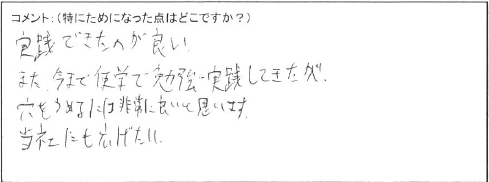 コメント:(特にためになった点はどこですか?)
実践できたのが良い
また、今まで独学で勉強・実践してきたが、
穴をうめるには非常に良いと思います。
当社にも広げたい。